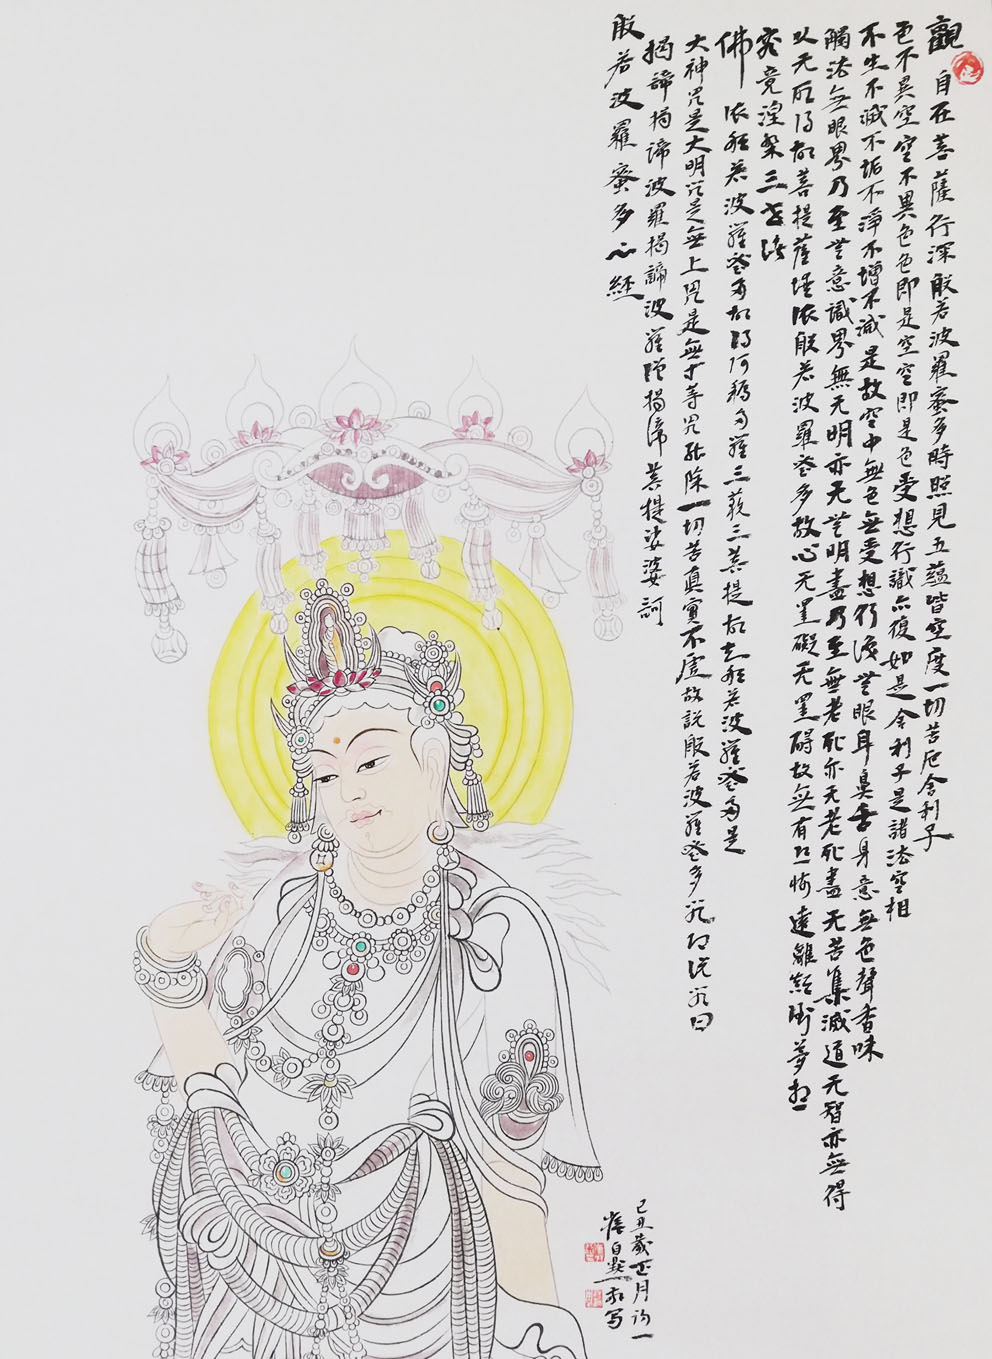 觀自在菩薩行深般若波羅蜜多時照見五蘊皆空度一切苦厄舍利子
色不異空空不異色色即是空空即是色受想行識亦復如是舍利子是諸法空相
不生不滅不垢不淨不增不減是故空中無色無受想行识無眼耳鼻舌身意無色聲香味
觸法無眼界乃至無意識界無无明亦无無明盡乃至無老死亦无老死盡无苦集滅道无智亦無得
以无所得故菩提薩埵依般若波羅蜜多故心无罣礙无罣碍故無有恐怖遠離顛倒夢想
究竟涅槃三世諸
佛依般若波羅蜜多故得阿耨多羅三藐三菩提故知般若波羅蜜多是
大神咒是大明咒是無上咒是無等等咒能除一切苦真實不虛故説般若波羅蜜多咒即说咒曰
揭諦揭諦波羅揭諦波羅僧揭諦菩提娑婆訶
般若波羅蜜多心經
己丑歲正月初一
崔自默敬写